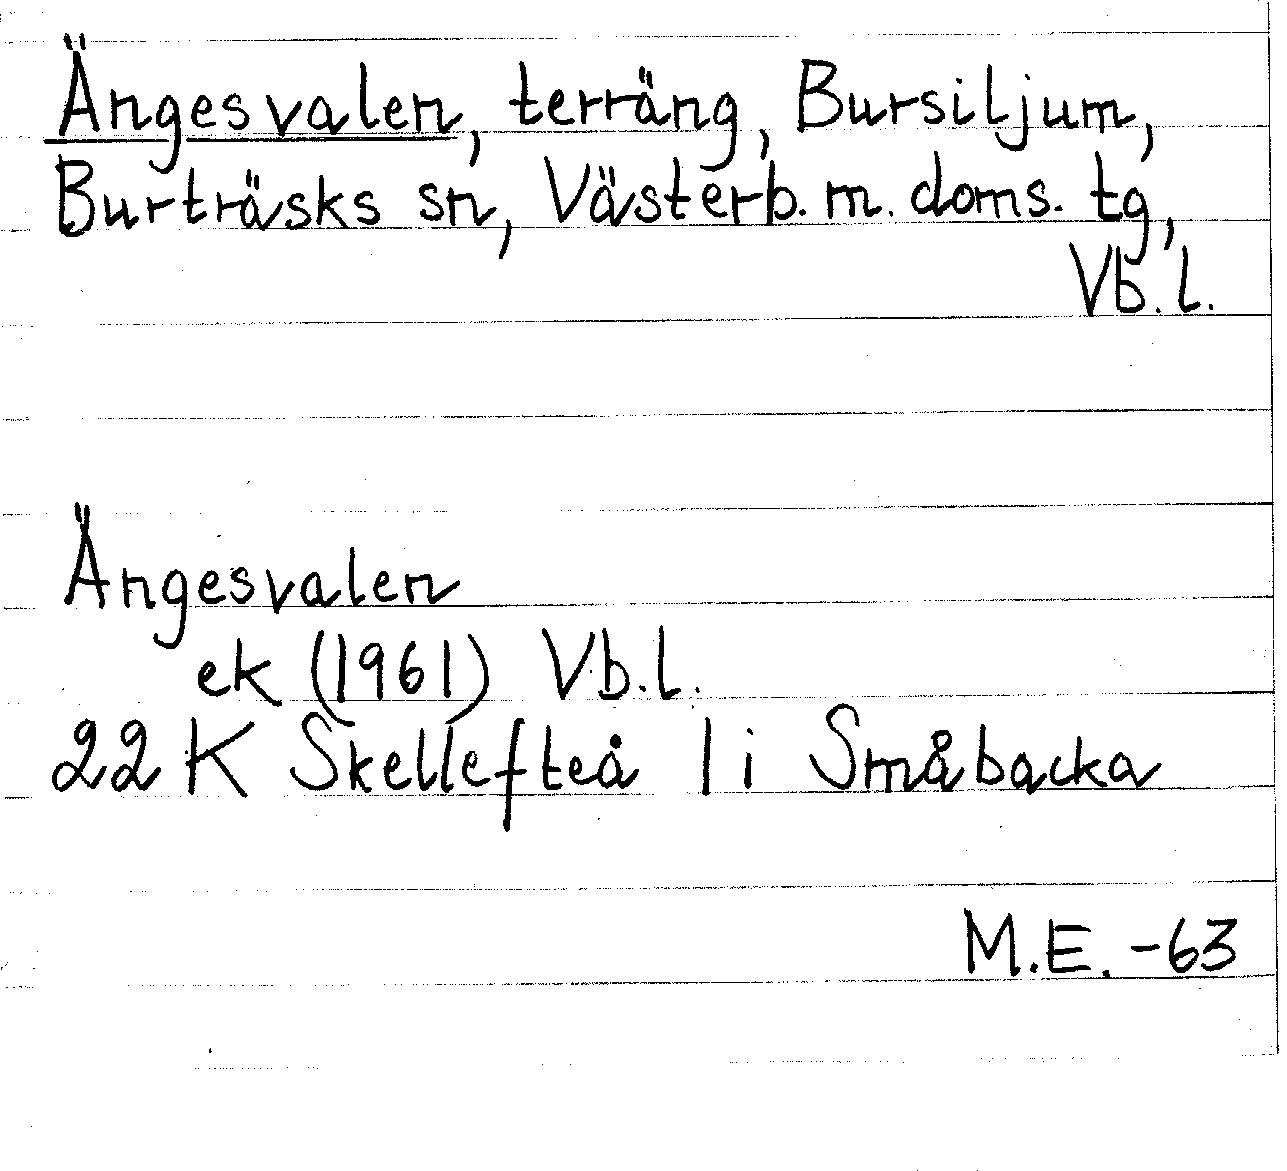 Ängesvalen, terräng, Bursiljum,
Burträsks sn, Västerb. m. doms. tg,
Vb. l.
Ängesvalen
ek (1961) Vb. l.
22 K Skellefteå 1 i Småbacka
M.E. -63